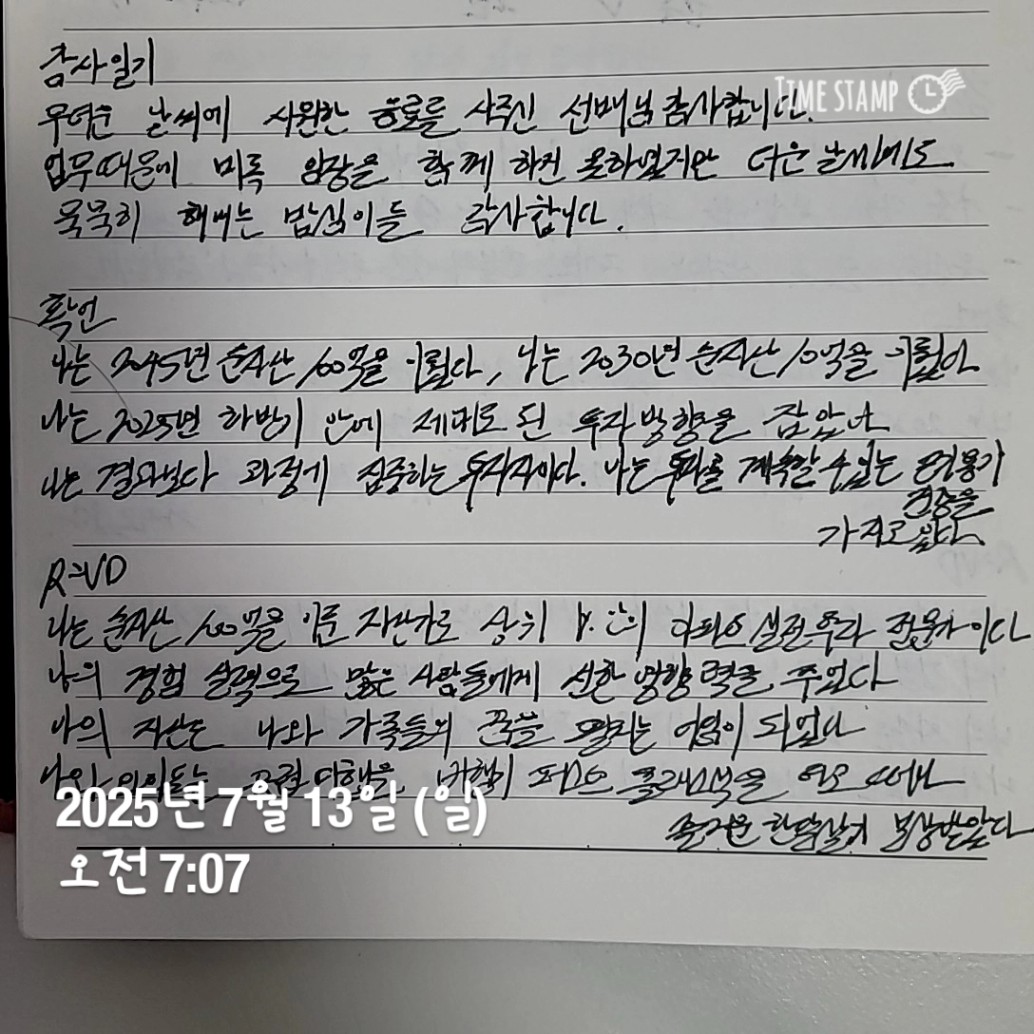 감사일기
TIME STAMP
무더운 날씨에 시원한 음료를 사주신 선배님 감사합니다.
업무때문에 비록 임장을 함께 하진 못하였지만 더운 날씨에도
묵묵히 해내는 밤심이들 감사합니다.
확언
나는 2045년 순자산 100억을 이뤘다, 나는 2030년 순자산 10억을 이뤘다
나는 2025년 하반기 안에 제대로 된 투자방향을 잡았다
나는 결과보다 과정에 집중하는 투자자이다. 나는 투자를 계속할 수 있는
가지고 있다
R=VD
나는 순자산 100억을 이룬 자산가로 상위 1% 안의 실전투자 전문가이다
나의 경험 실력으로 많은 사람들에게 선한 영향력을 주었다
나의 자산은 나와 가족들의 꿈을 펼치는 이 되었다
비행기 퍼스트 클래스석을 타고
즐거운 한달살기 보상받았다
2025년 7월 13일 (일)
오전 7:07